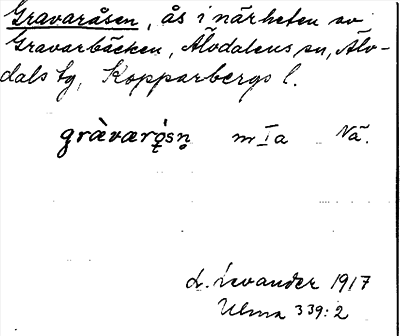 Gravaråsen, ås i närheten av
Gravarbäcken, Älvdalens sn, Älv-
dals tg, Kopparbergs l.
gràvarǫ̀sn̥ m I a Nä.
L. Levander 1917
Ulma 339:2